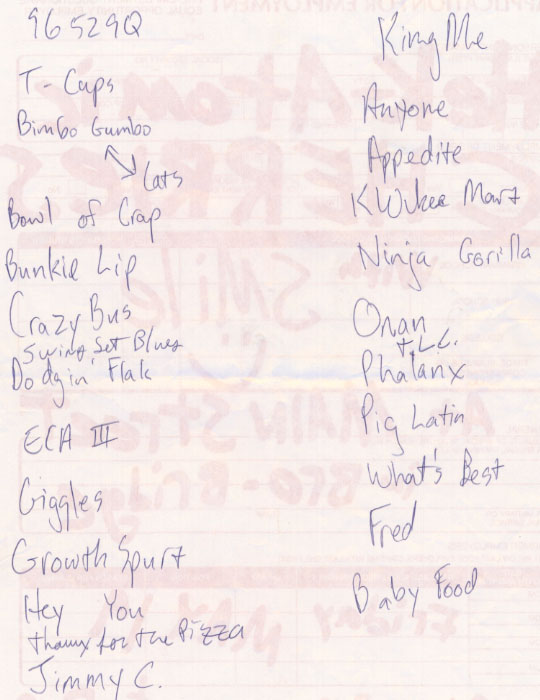 96529Q
T-Caps
Bimbo Gumbo
Cats
Bowl of Crap
Bunkie Lip
Crazy Bus
Swing Set Blues
Dodgin' Flak
ECA III
Giggles
Growth Spurt
Hey You
thanx for the Pizza
Jimmy C.
King Me
Anyone
Appedite
KWukee Mart
Ninja Gorilla
Onan
+ L.C.
Phalanx
Pig Latin
What's Best
Fred
Baby Food